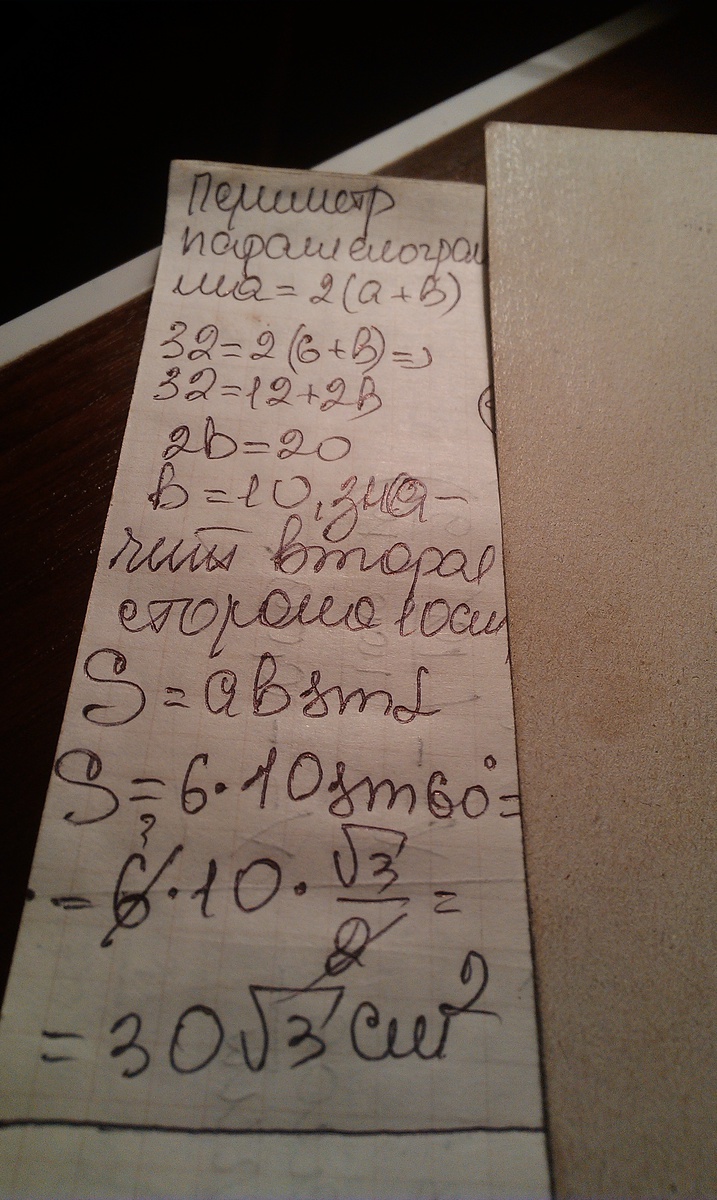 Периметр
параллелограм
ма = 2(a+b)
32=2(6+b)=>
32=12+2b
2b=20
b=10, зна-
чит вторая
сторона 10см
S = ab sin α
S = 6·10 sin 60° =
= 6·10·√3/2 =
3
= 30√3 см²